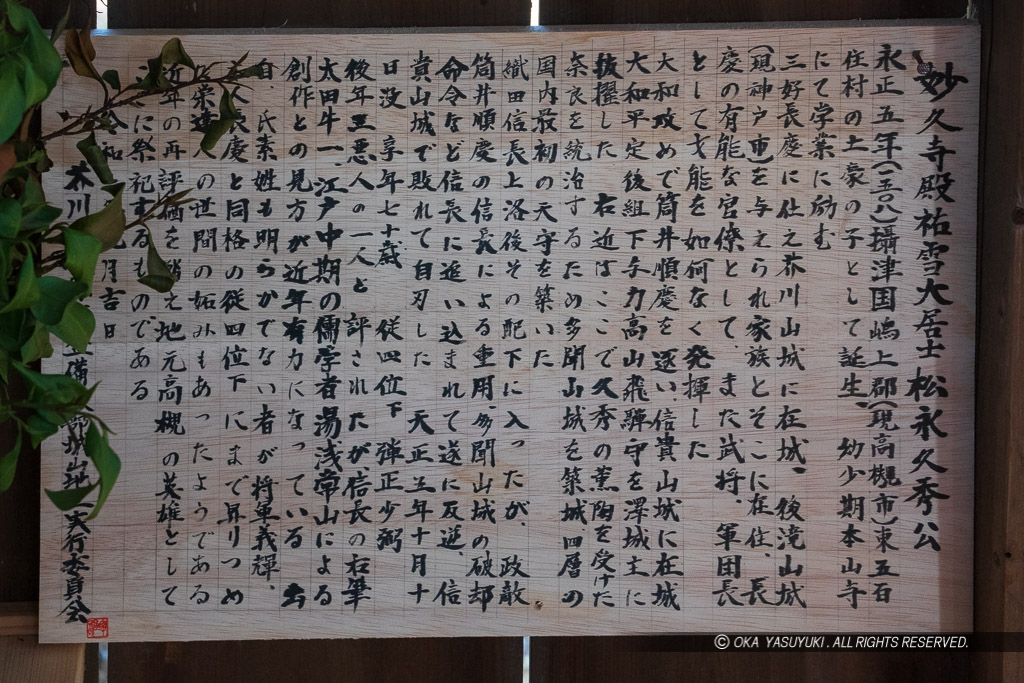 妙久寺殿祐雪大居士 松永久秀公
永正五年(一五〇八)攝津国嶋上郡(現高槻市)東五百
住村の土豪の子として誕生、幼少期本山寺
にて学業に励む
三好長慶に仕え芥川山城に在城、後滝山城
(現神戸市)を与えられ家族とそこに在住、長
慶の有能な官僚として、また武将、軍団長
としてて才能を如何なく発揮した
大和攻めで筒井順慶を逐い、信貴山城に在城
大和平定後組下与力高山飛騨守を澤城主に
抜擢した 右近はここで久秀の薫陶を受けた
奈良を統治するため多聞山城を築城四層の
国内最初の天守を築いた
織田信長上洛後その配下に入ったが、政敵
筒井順慶の信長による重用、多聞山城の破却
命令など信長に追い込まれて遂に反逆 信
貴山城で敗れて自刃した 天正五年十月十
日没 享年七十歳 従四位下 弾正少弼
後年三悪人の一人と評されたが、信長の右筆
太田牛一、江戸中期の儒学者湯浅常山による
創作との見方が近年有力になっている 出
自、氏素姓も明らかでない者が将軍義輝、
人長慶と同格の従四位下にまで昇りつめ
栄達 人の世間の妬みもあったようである
近年の再評価を踏え地元高槻の英雄として
に祭祀するものである
令和 月吉日
芥川 城出地 実行委員会
© OKA YASUYUKI. ALL RIGHTS RESERVED.